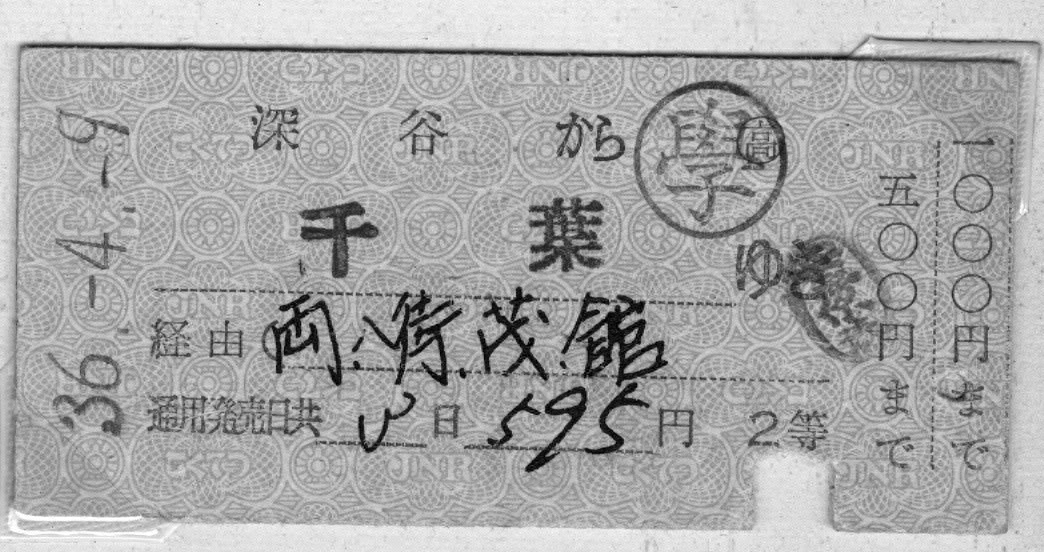 36.-4.-9
深谷から
學
高
千葉ゆき
経由 両.八.待.茂.館
通用発売日共 3日 595円 2等
五〇〇〇円まで
一〇〇〇〇円まで
JNR